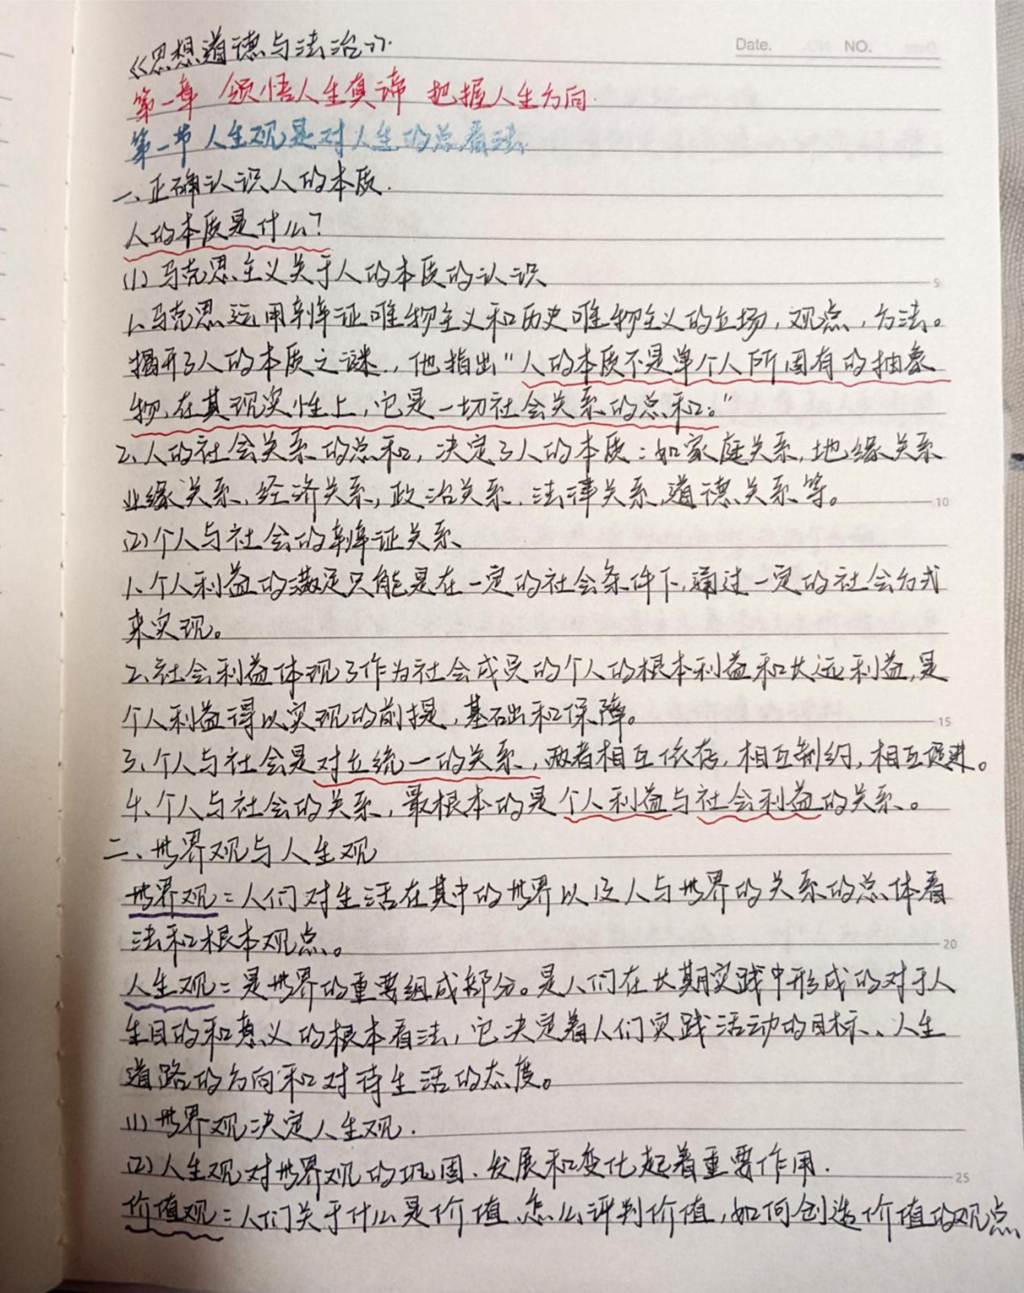 《思想道德与法治》
Date. NO.
第一章 领悟人生真谛 把握人生方向.
第一节 人生观是对人生的总看法
一、正确认识人的本质.
人的本质是什么?
(1)马克思主义关于人的本质的认识
5
1、马克思运用辩证唯物主义和历史唯物主义的立场,观点,方法。
揭开了人的本质之谜.,他指出"人的本质不是单个人所固有的抽象
物,在其现实性上,它是一切社会关系的总和。"
2、人的社会关系的总和,决定了人的本质:如家庭关系,地缘关系
业缘关系、经济关系,政治关系.法律关系.道德关系等。
10
(2)个人与社会的辩证关系
1、个人利益的满足只能是在一定的社会条件下,通过一定的社会方式
来实现。
2、社会利益体现了作为社会成员的个人的根本利益和长远利益,是
个人利益得以实现的前提,基础和保障。
15
3、个人与社会是对立统一的关系,两者相互依存,相互制约,相互促进。
4、个人与社会的关系,最根本的是个人利益与社会利益的关系。
二、世界观与人生观
世界观:人们对生活在其中的世界以及人与世界的关系的总体看
法和根本观点。
20
人生观:是世界的重要组成部分。是人们在长期实践中形成的对于人
生目的和意义的根本看法,它决定着人们实践活动的目标、人生
道路的方向和对待生活的态度。
(1)世界观决定人生观.
(2)人生观对世界观的巩固.发展和变化起着重要作用.
25
价值观:人们关于什么是价值、怎么评判价值,如何创造价值的观点